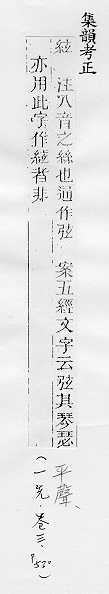 集韻考正
絃 注八音之絲也通作弦 案五經文字云弦其琴瑟
亦用此字作絃者非
平聲、
(一先·卷三·P530)